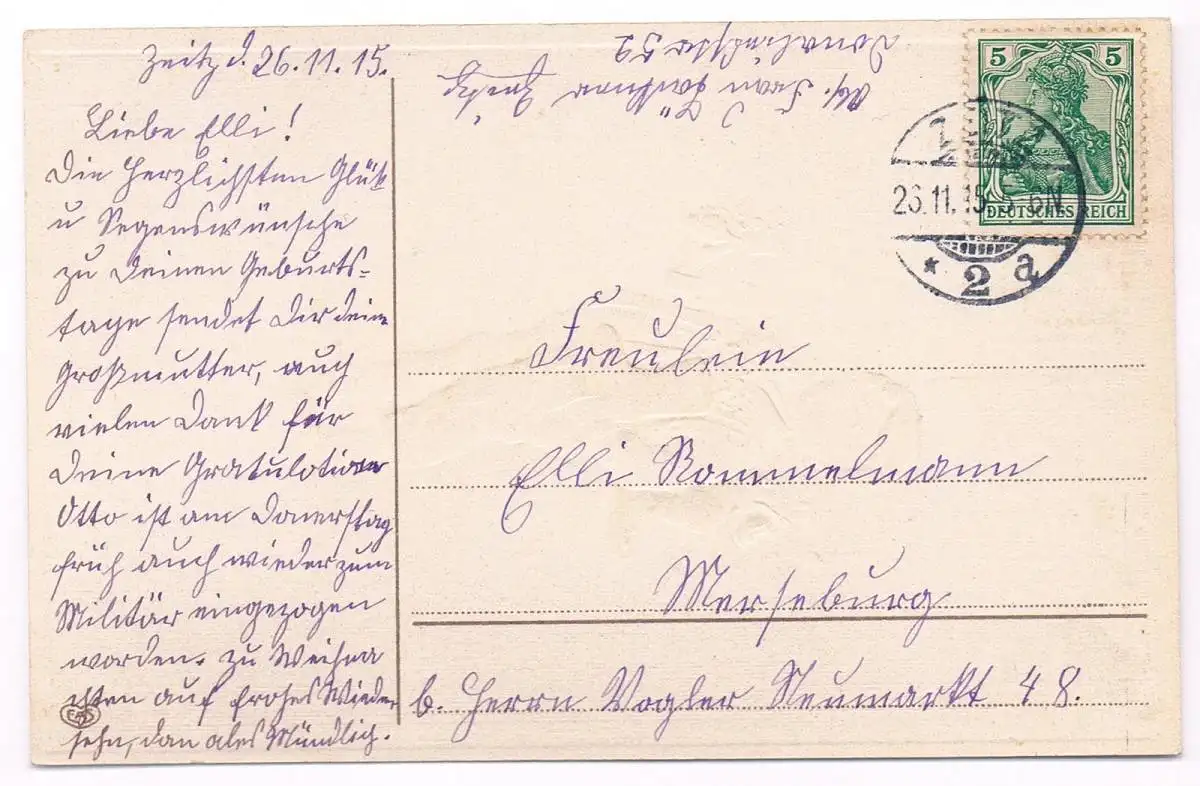 Zeitz d. 26.11.15.
Liebe Elli!
Die Herzlichsten Glük
u Segenswünsche
zu Deinen Geburts-
tage sendet Dir deine
Großmutter, auch
vielen Dank für
Deine Gratulation
Otto ist am Donerstag
früh auch wieder zum
Militär eingezogen
worden. zu Weihna
chten auf frohes Wieder
sehn, dan ales Mündlich.
EAS
Abs. Frau
Zeitz
52
5 5
DEUTSCHES REICH
ZEITZ
26.11.15. 5-6N
* 2 a
Freulein
Elli Rommelmann
Merseburg
b. Herrn Vogler Neumarkt 48.